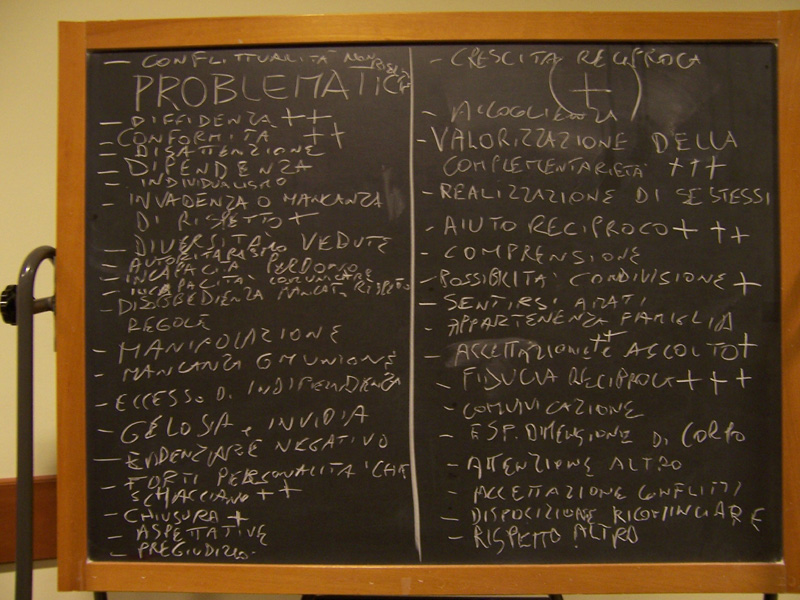 - CONFLITTUALITÀ NON RISOLTA
PROBLEMATICA
- DIFFIDENZA ++
- CONFORMITÀ ++
- DISATTENZIONE
- DIPENDENZA
- INDIVIDUALISMO
- INVADENZA O MANCANZA
DI RISPETTO +
- DIVERSITÀ VEDUTE
- AUTORITARISMO
- INCAPACITÀ PERDONO
- INCAPACITÀ COMUNICARE
- DISOBBEDIENZA MANCATO RISPETTO
REGOLE
- MANIPOLAZIONE
- MANCANZA COMUNIONE
- ECCESSO DI INDIPENDENZA
- GELOSIA e INVIDIA
- EVIDENZIARE NEGATIVO
- FORTI PERSONALITÀ CHE
SCHIACCIANO ++
- CHIUSURA +
- ASPETTATIVE
- PREGIUDIZIO
- CRESCITA RECIPROCA
(+)
- ACCOGLIENZA
- VALORIZZAZIONE DELLA
COMPLEMENTARIETÀ +++
- REALIZZAZIONE DI SE STESSI
- AIUTO RECIPROCO +++
- COMPRENSIONE
- POSSIBILITÀ CONDIVISIONE +
- SENTIRSI AMATI
- APPARTENENZA FAMIGLIA
- ACCETTAZIONE ++ ASCOLTO +
- FIDUCIA RECIPROCA +++
- COMUNICAZIONE
- ESP. DIMENSIONE DI CORPO
- ATTENZIONE ALTRO
- ACCETTAZIONE CONFLITTI
- DISPOSIZIONE RICOMINCIARE
- RISPETTO ALTRO